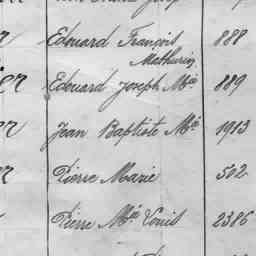 Edouard François 888
Mathurin
Edouard Joseph Mie 889
Jean Baptiste Mie 1913
Pierre Marie 502
Pierre Mie Louis 2386